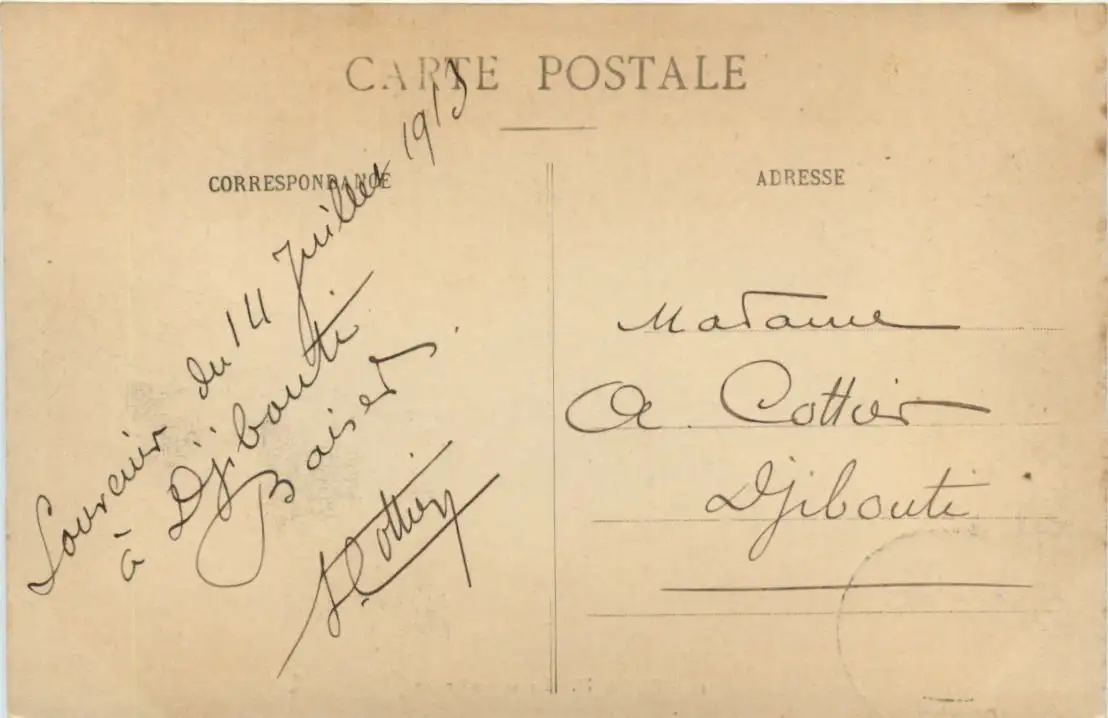 CARTE POSTALE
CORRESPONDANCE
ADRESSE
Souvenir du 14 Juillet 1913
à Djibouti
Baiser
A Cottier
Madame
A. Cottier
Djibouti